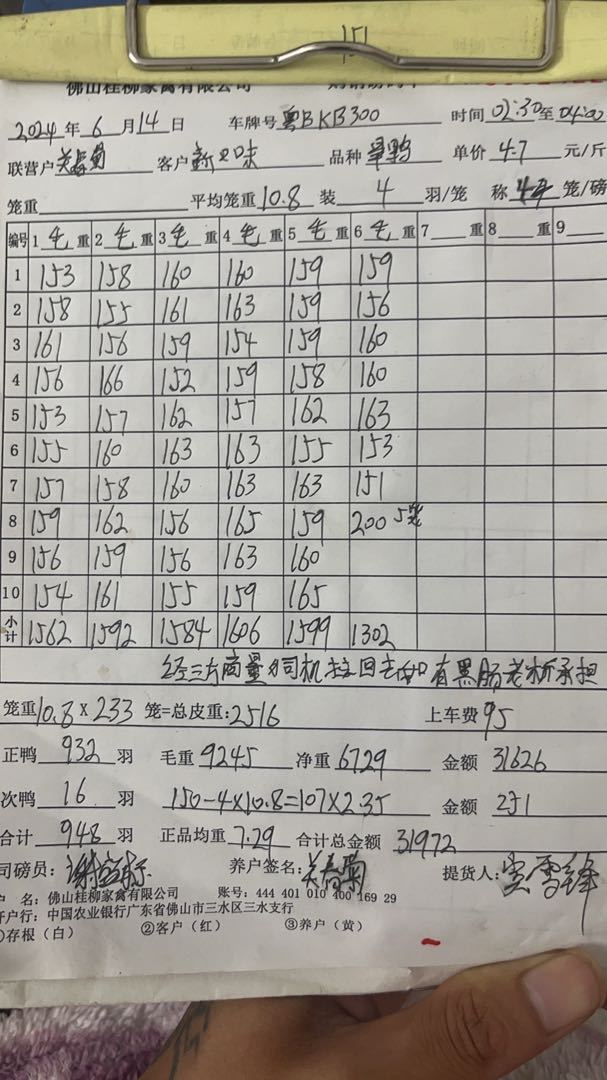 151
佛山桂柳家禽有限公司
2024年6月14日 车牌号 粤BKB300 时间 02:30至04:00
联营户 客户 新口味 品种 单价 4.7 元/斤
笼重 平均笼重 10.8 装 4 羽/笼 称 笼/磅
编号 1 毛 重 2 毛 重 3 毛 重 4 毛 重 5 毛 重 6 毛 重 7 重 8 重 9
1 153 158 160 160 159 159
2 158 155 161 163 159 156
3 161 156 159 154 159 160
4 156 166 152 159 158 160
5 153 157 162 157 162 163
6 155 160 163 163 155 153
7 157 158 160 163 163 151
8 159 162 156 165 159 200 5笼
9 156 159 156 163 160
10 154 161 155 159 165
小计 1562 1592 1584 1606 1599 1302
经三方商量 司机拉回去 有黑肠老 承担
笼重 10.8 × 233 笼=总皮重: 2516 上车费 95
正鸭 932 羽 毛重 9245 净重 6729 金额 31626
次鸭 16 羽 150-4×10.8=107×2.35 金额 251
合计 948 羽 正品均重 7.29 合计总金额 31972
司磅员: 养户签名: 提货人:
户 名: 佛山桂柳家禽有限公司 账号: 444 401 010 400 169 29
开户行: 中国农业银行广东省佛山市三水区三水支行
①存根（白） ②客户（红） ③养户（黄）